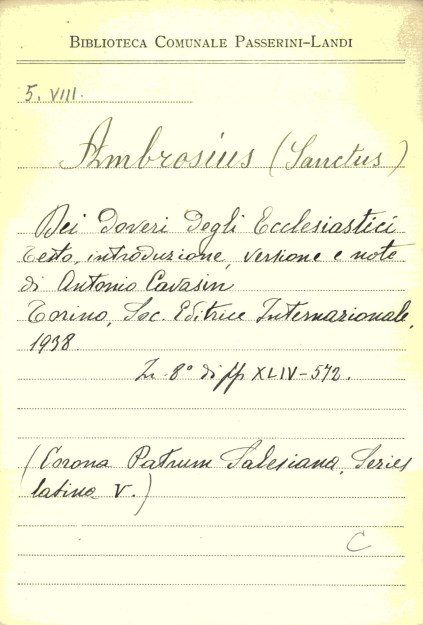 BIBLIOTECA COMUNALE PASSERINI-LANDI
5. VIII.
Ambrosius (Sanctus)
Dei Doveri Degli Ecclesiastici
Testo, introduzione, versione e note
di Antonio Cavasin
Torino, Soc. Editrice Internazionale,
1938
In 8° di pp XLIV-572.
(Corona Patrum Salesiana, Series
latina V.)
C